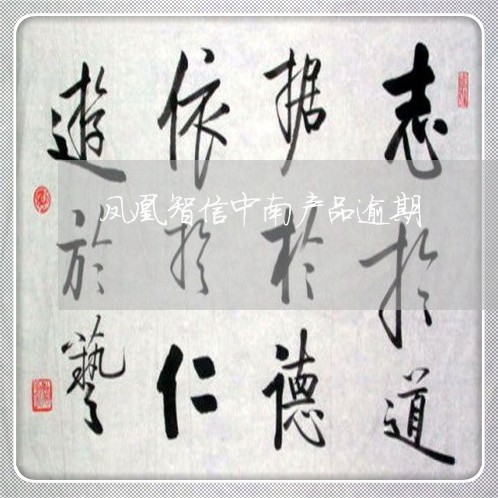 志於道
据於德
依於仁
遊於藝
凤凰智信中南产品逾期